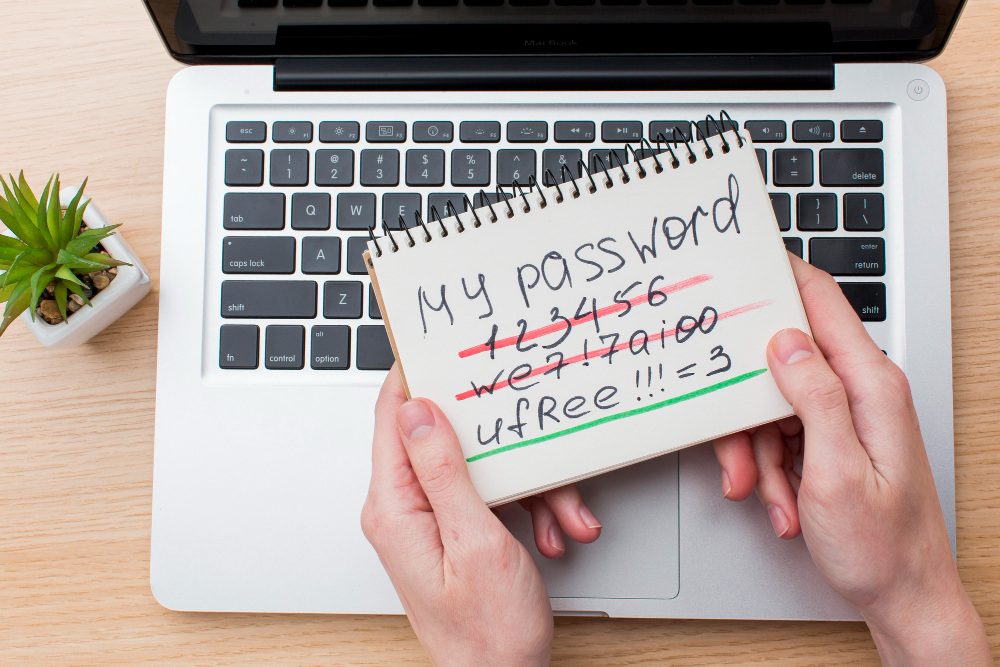 MacBook
esc F1 F2 F3 F4 F5 F6 F7 F8 F11 F12
~ ! @ # $ % ^ & + delete
` 1 2 3 4 5 6 =
tab Q W E } | 
] \
caps lock A enter
return
shift Z shift
fn control alt
option
My password
123456
we7!7aioo
ufRee!!!=3